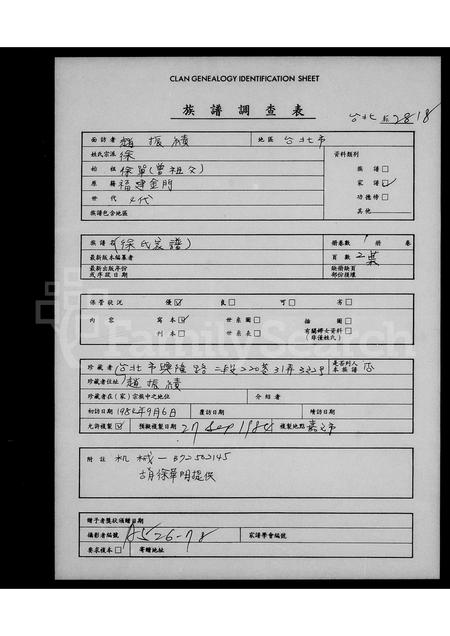 CLAN GENEALOGY IDENTIFICATION SHEET
族譜調查表
台北 2818
面訪者 趙振績 地區 台北市
姓氏宗派 徐 資料類別
始祖 徐單(曾祖父) 族譜□
原籍 福建金門 家譜☑
世代 4代 功德榜□
族譜包含地區 其他
族譜名(徐氏家譜) 冊卷數 1 冊 卷
最新版本編纂者 頁數 2葉
最新出版年份 缺冊缺頁
或序跋日期 部份損壞
保管狀況 優☑ 良□ 可□ 劣□
內容 寫本☑ 世系圖□ 插圖□
刊本□ 世系表□ 有關婦女資料□
(非僅姓氏)
珍藏者 台北市興隆路二段220巷31弄 是否列入本族譜 否
珍藏者住址 趙振績
珍藏者在(家)宗族中之地位 介紹者
初訪日期 1984年9月6日 覆訪日期 續訪日期
允許複製☑ 預擬複製日期 27 Sep 1984 複製地點 嘉文市
附註 机械一B72502145
胡徐華明提供
贈予者獎狀頒贈日期
攝影者編號 A526-78 家譜學會編號
要求複本□ 寄贈地址
FamilySearch